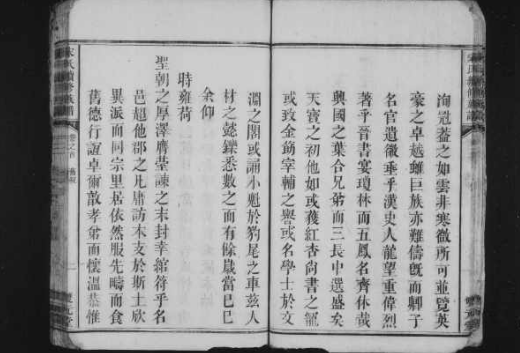 洵冠蓋之如雲非寒微所可並覽英
豪之卓越雖巨族亦難儔旣而卿子
名官遺徽垂乎漢史人龍望重偉烈
著乎晉書宴瓊林而五鳳名齊休哉
興國之葉合兄弟而三長中選盛矣
天寶之初他如或穫紅杏尚書之寵
或致金錫宰輔之譽或名學士於文
淵之閣或誦小魁於豹尾之車茲人
材之懿鑠悉數之而有餘歲當巳巳
余仰
時雍荷
聖朝之厚澤膺臺諫之末封幸綰符乎名
邑超他郡之凡庸訪本支於斯土欣
異派而同宗里居依然服先疇而食
舊德行誼卓爾敦孝弟而懷溫恭惟
宋氏續修族譜